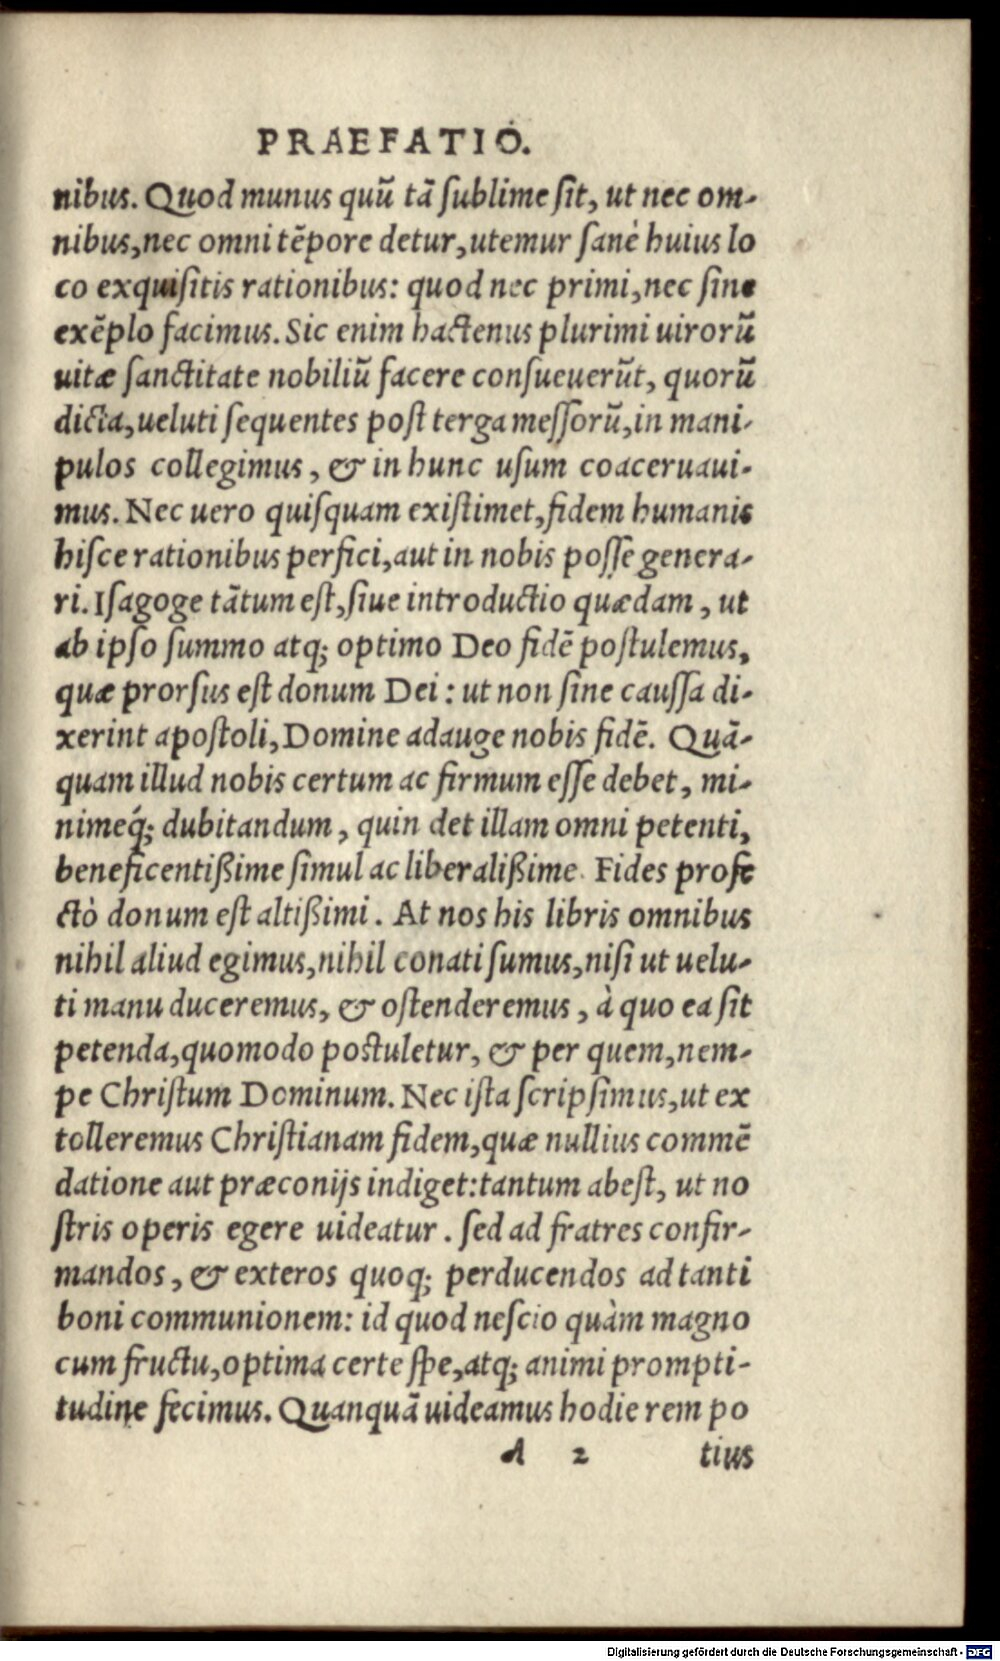 PRAEFATIO.
nibus. Quod munus quũ tã ſublime ſit, ut nec om-
nibus, nec omni tẽpore detur, utemur ſanè huius lo
co exquiſitis rationibus: quod nec primi, nec ſine
exẽplo facimus. Sic enim hactenus plurimi uirorũ
uitæ ſanctitate nobiliũ facere conſueuerũt, quorũ
dicta, ueluti ſequentes poſt terga meſſorũ, in mani-
pulos collegimus, & in hunc uſum coaceruaui-
mus. Nec uero quiſquam exiſtimet, fidem humanis
hiſce rationibus perfici, aut in nobis poſſe genera-
ri. Iſagoge tãtum eſt, ſiue introductio quædam, ut
ab ipſo ſummo atq; optimo Deo fidẽ poſtulemus,
quæ prorſus eſt donum Dei: ut non ſine cauſſa di-
xerint apoſtoli, Domine adauge nobis fidẽ. Quã-
quam illud nobis certum ac firmum eſſe debet, mi-
nimeq́; dubitandum, quin det illam omni petenti,
beneficentißime ſimul ac liberalißime. Fides profe
ctò donum eſt altißimi. At nos his libris omnibus
nihil aliud egimus, nihil conati ſumus, niſi ut uelu-
ti manu duceremus, & oſtenderemus, à quo ea ſit
petenda, quomodo poſtuletur, & per quem, nem-
pe Chriſtum Dominum. Nec iſta ſcripſimus, ut ex
tolleremus Chriſtianam fidem, quæ nullius commẽ
datione aut præconijs indiget: tantum abeſt, ut no
ſtris operis egere uideatur. ſed ad fratres confir-
mandos, & exteros quoq; perducendos ad tanti
boni communionem: id quod neſcio quàm magno
cum fructu, optima certe ſpe, atq; animi prompti-
tudine fecimus. Quanquã uideamus hodie rem po
A 2 tius
Digitalisierung gefördert durch die Deutsche Forschungsgemeinschaft - DFG